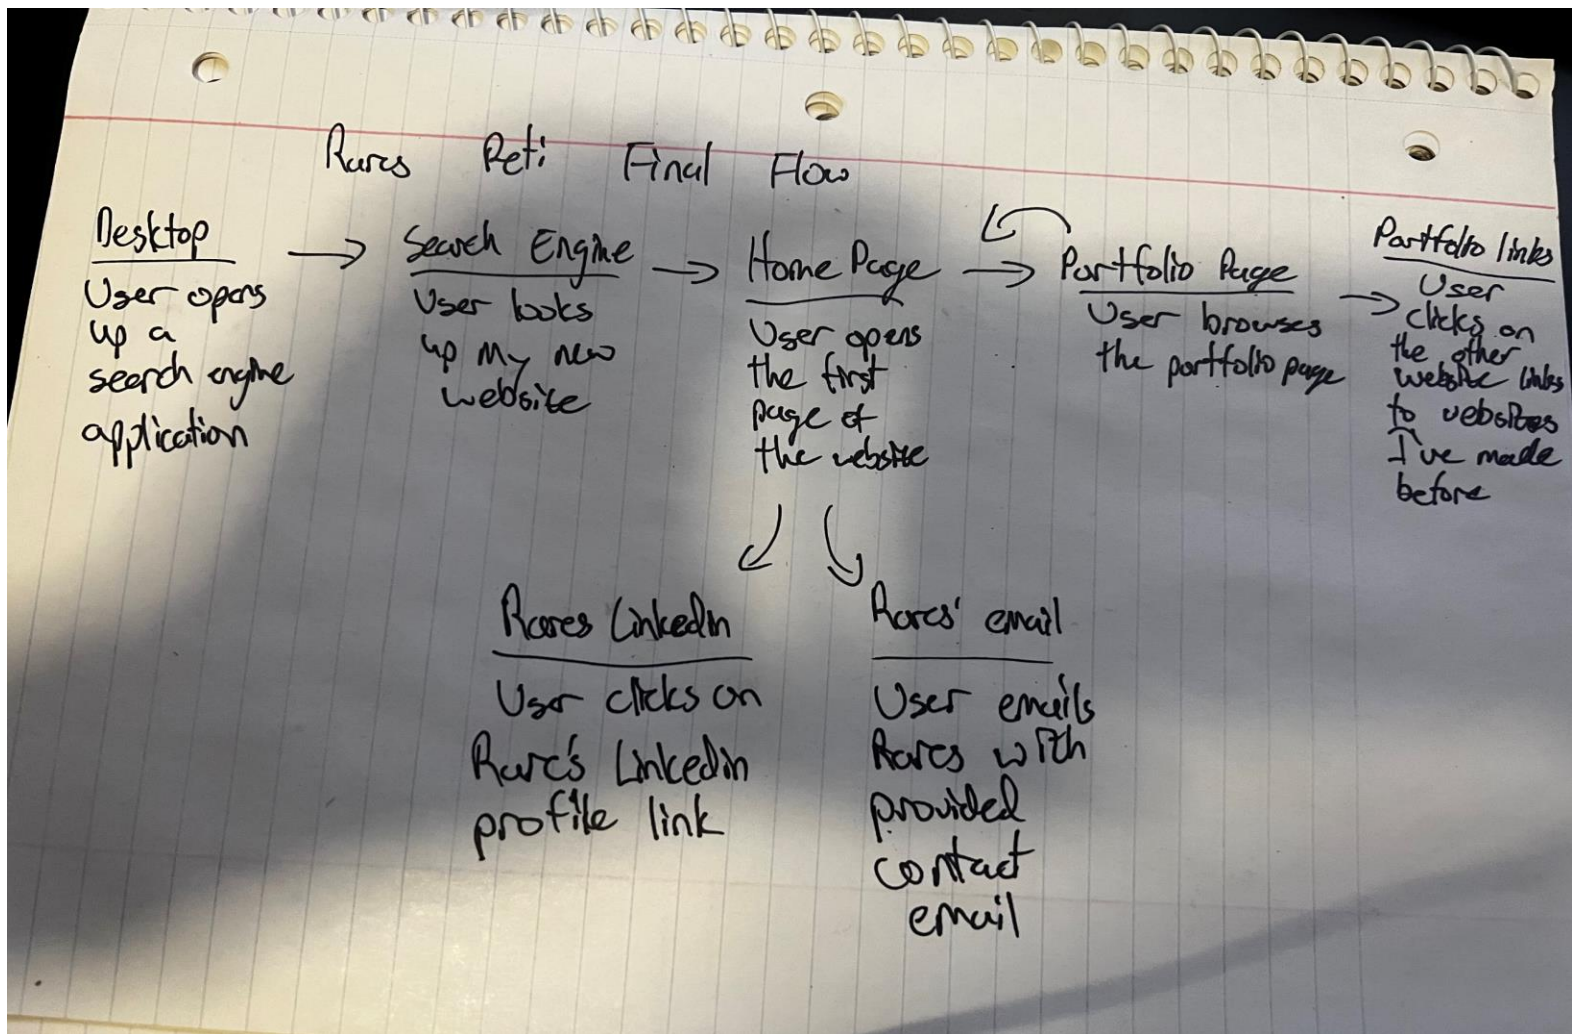 Rares Reti Final Flow
Desktop
User opens
up a
search engine
application
Search Engine
User looks
up my new
website
Home Page
User opens
the first
page of
the website
Portfolio Page
User browses
the portfolio page
Portfolio links
User
clicks on
the other
website links
to websites
I've made
before
Rares Linkedin
User clicks on
Rare's Linkedin
profile link
Rares' email
User emails
Rares with
provided
contact
email